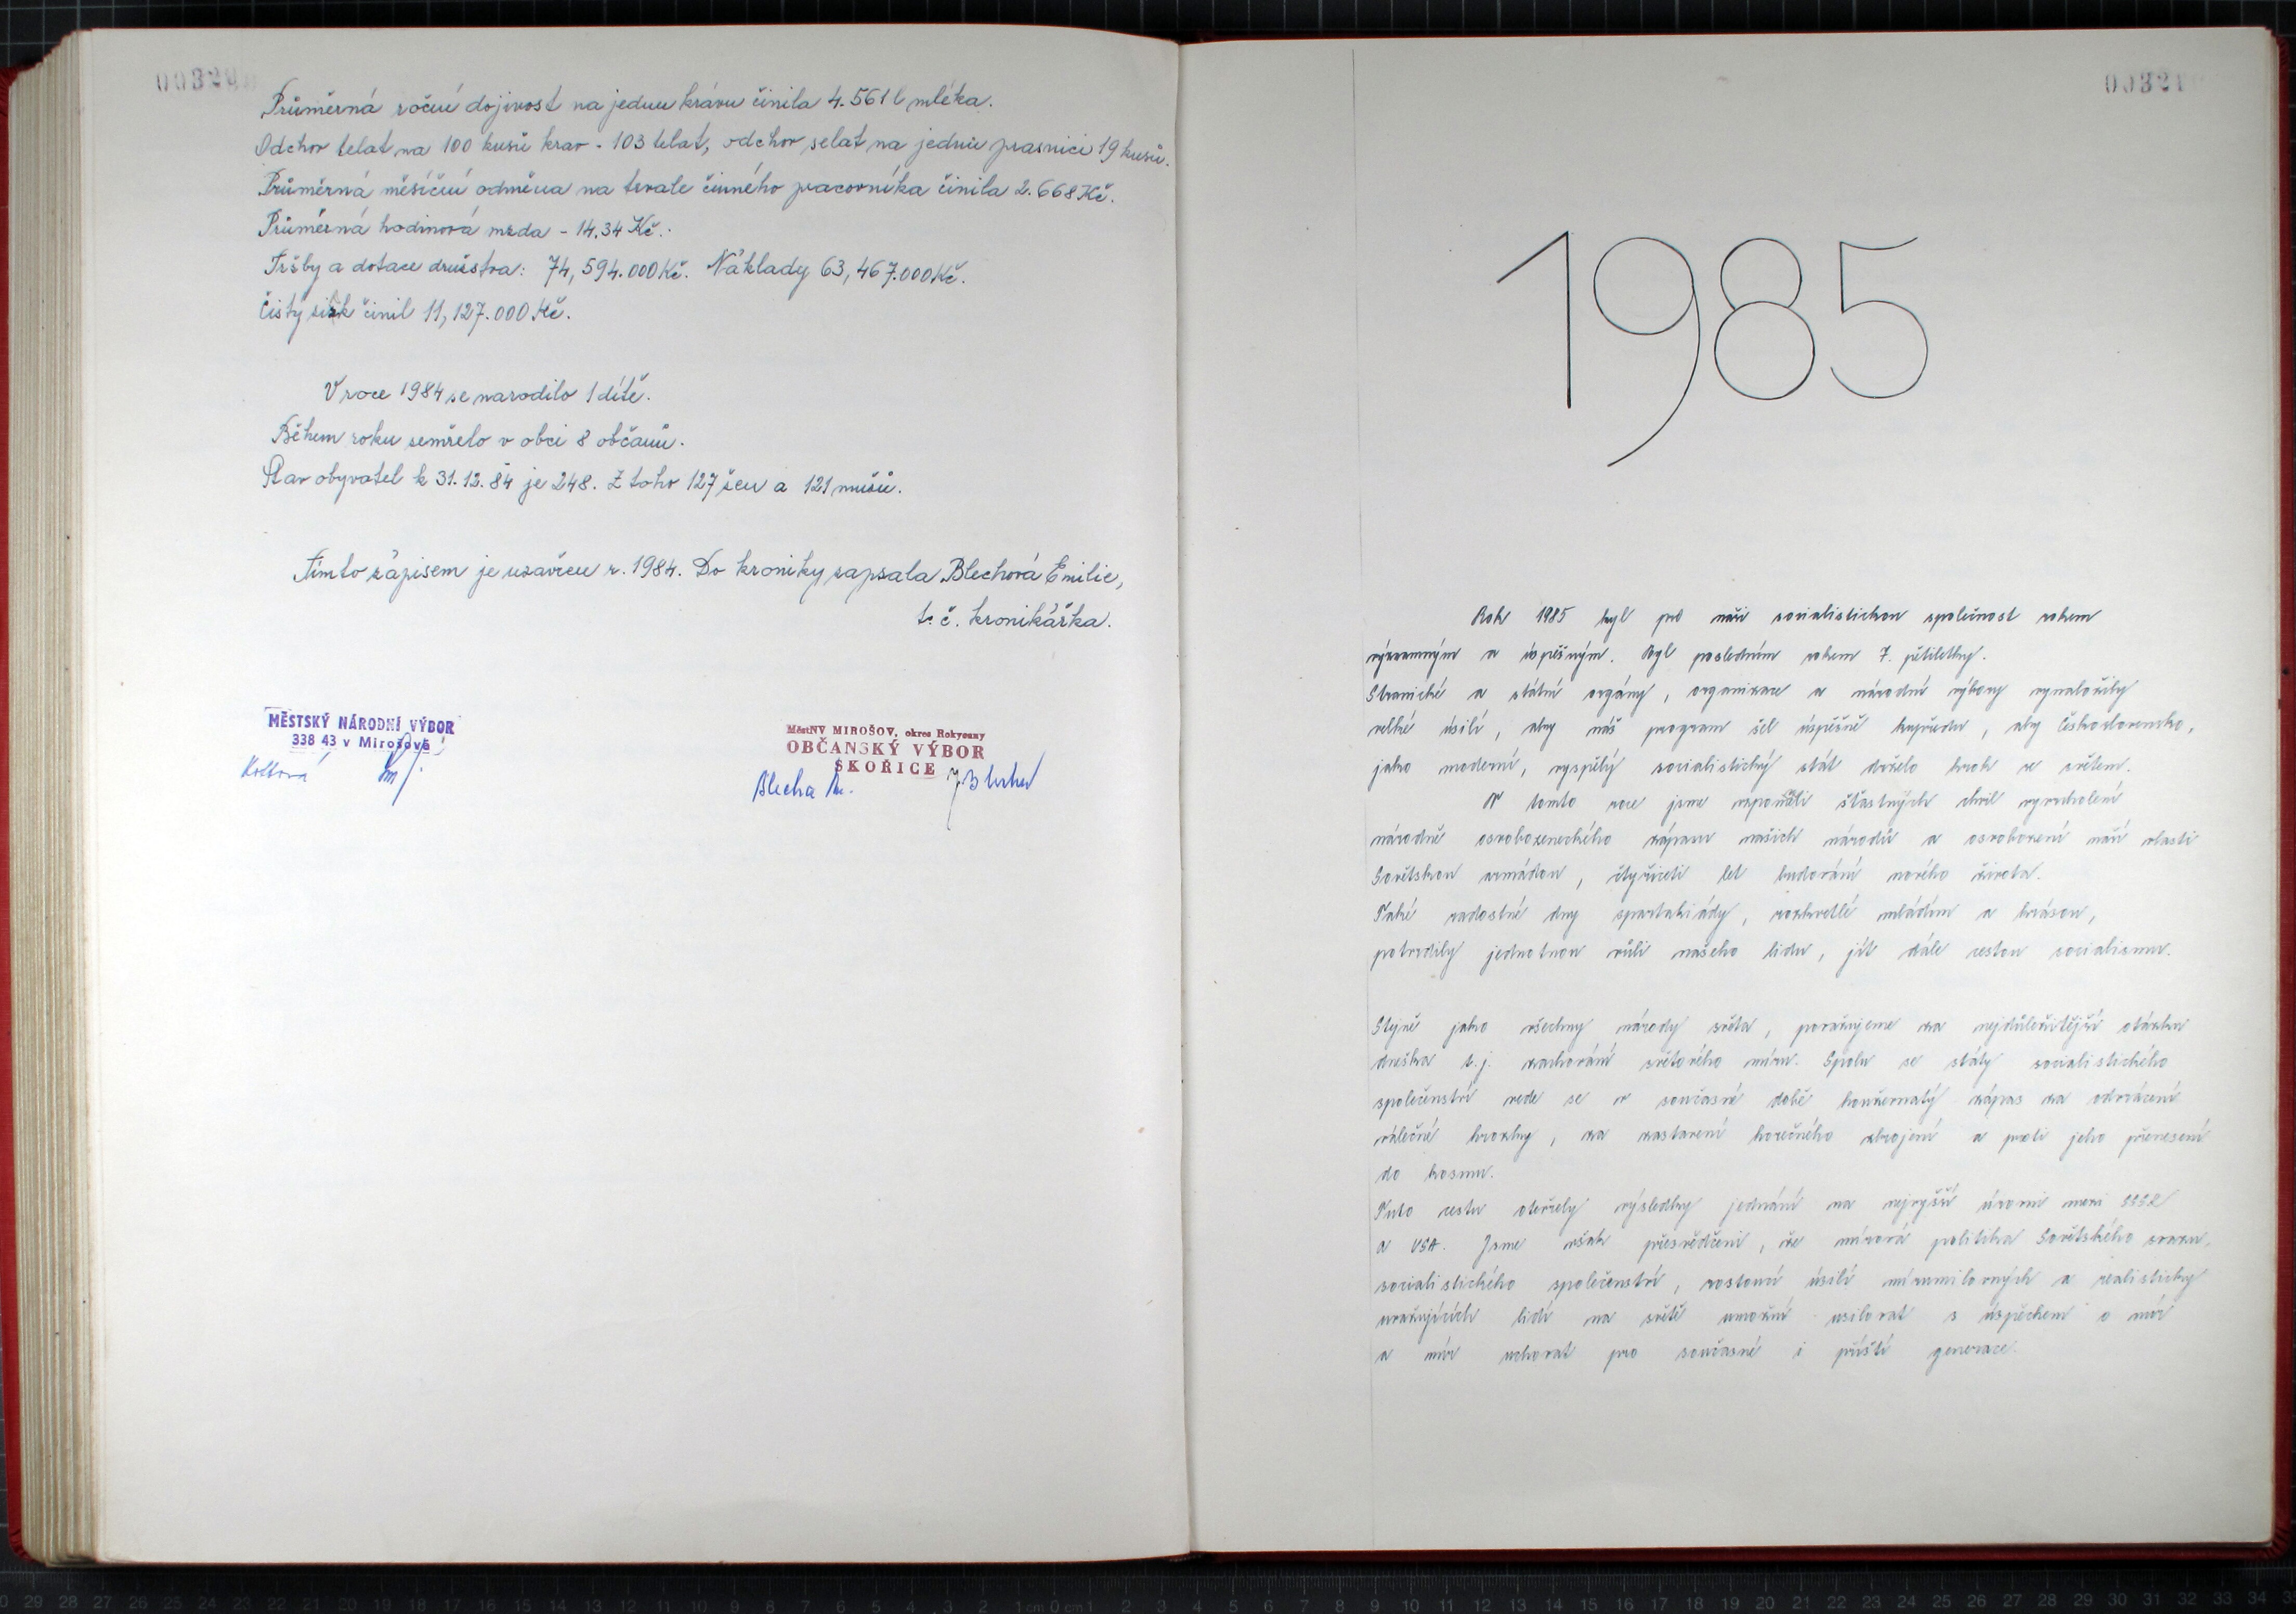 00320
Průměrná roční dojivost na jednu krávu činila 4.561 l mléka.
Odchov telat na 100 kusů krav - 103 telat, odchov selat na jednu prasnici 19 kusů.
Průměrná měsíční odměna na trvale činného pracovníka činila 2.668 Kč.
Průměrná hodinová mzda - 14.34 Kč.
Tržby a dotace družstva: 74,594.000 Kč. Náklady 63,467.000 Kč.
Čistý zisk činil 11,127.000 Kč.
V roce 1984 se narodilo 1 dítě.
Během roku zemřelo v obci 8 občanů.
Stav obyvatel k 31.12.84 je 248. Z toho 127 žen a 121 mužů.
Tímto zápisem je uzavřen r. 1984. Do kroniky zapsala Blechová Emilie,
t. č. kronikářka.
MĚSTSKÝ NÁRODNÍ VÝBOR
338 43 v Mirošově
MěstNV MIROŠOV, okres Rokycany
OBČANSKÝ VÝBOR
SKOŘICE
Blecha
00321
1985
Rok 1985 byl pro naši socialistickou společnost rokem
významným a úspěšným. Byl posledním rokem 7. pětiletky.
Stranické a státní orgány, organizace a národní výbory vynaložily
velké úsilí, aby náš program šel úspěšně kupředu, aby Československo,
jako moderní, vyspělý socialistický stát drželo krok se světem.
V tomto roce jsme vzpoměli šťastných chvil vyvrcholení
národně osvobozeneckého zápasu našich národů a osvobození naší vlasti
Sovětskou armádou, čtyřiceti let budování nového života.
Také radostné dny spartakiády, rozkvetlé mládím a krásou,
potvrdily jednotnou vůli našeho lidu, jít dále cestou socialismu.
Stejně jako všechny národy světa, považujeme za nejdůležitější otázku
dneška t.j. zachování světového míru. Spolu se státy socialistického
společenství vede se v současné době houževnatý zápas za odvrácení
válečné hrozby, za zastavení horečného zbrojení a proti jeho přenesení
do kosmu.
Tuto cestu otevřely výsledky jednání na nejvyšší úrovni mezi SSSR
a USA. Jsme však přesvědčeni, že mírová politika Sovětského svazu,
socialistického společenství, rostoucí úsilí mírumilovných a realisticky
uvažujících lidí na světě umožní usilovat s úspěchem o mír
a mír uchovat pro současné i příští generace.